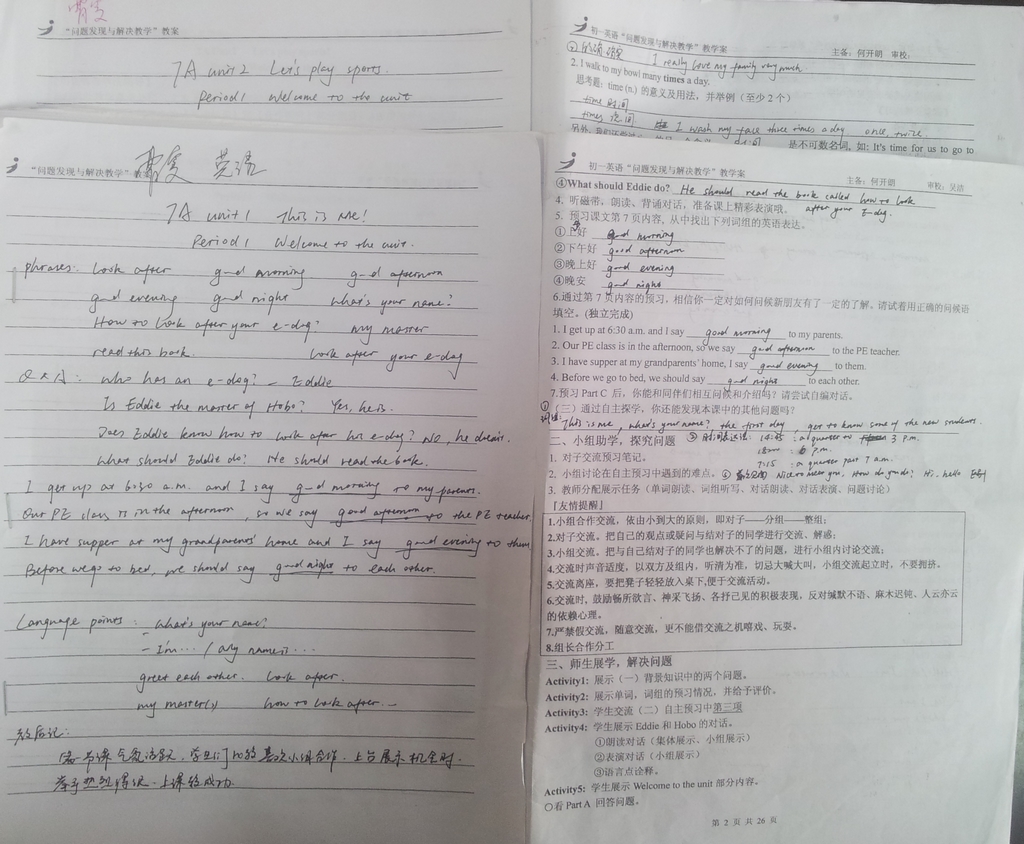 “问题发现与解决教学”教案
7A unit 2 Let's play sports.
Period 1 Welcome to the unit
初一英语“问题发现与解决教学”教学案 主备：何开朗 审校：
I really love my family very much.
2. I walk to my bowl many times a day.
思考题: time (n.) 的意义及用法，并举例（至少 2 个）
time 时间
times I wash my face three times a day once, twice
是不可数名词, 如: It's time for us to go to
“问题发现与解决教学”教案 英语
7A unit 1 This is me!
Period 1 Welcome to the unit.
phrases: look after good morning good afternoon
good evening good night what's your name?
How to look after your e-dog? my master
read this book. look after your e-dog
Q & A: who has an e-dog? – Eddie
Is Eddie the master of Hobo? Yes, he is.
Does Eddie know how to look after his e-dog? No, he doesn't.
What should Eddie do? He should read the book.
I get up at 6:30 a.m. and I say good morning to my parents.
Our PE class is in the afternoon, so we say good afternoon to the PE teacher
I have supper at my grandparents' home and I say good evening to them
Before we go to bed, we should say good night to each other.
Language points: – what's your name?
– I'm ... / my name is ...
greet each other. look after.
my master(s) how to look after...
教后记:
上台展示
上课较成功
初一英语“问题发现与解决教学”教学案 主备：何开朗 审校：吴洁
④What should Eddie do? He should read the book called how to look
after your E-dog.
4. 听磁带，朗读、背诵对话，准备课上精彩表演哦。
5. 预习课文第 7 页内容, 从中找出下列词组的英语表达。
①上午好 good morning
②下午好 good afternoon
③晚上好 good evening
④晚安 good night
6.通过第 7 页内容的预习，相信你一定对如何问候新朋友有了一定的了解。请试着用正确的问候语
填空。(独立完成)
1. I get up at 6:30 a.m. and I say good morning to my parents.
2. Our PE class is in the afternoon, so we say good afternoon to the PE teacher.
3. I have supper at my grandparents' home, I say good evening to them.
4. Before we go to bed, we should say good night to each other.
7.预习 Part C 后，你能和同伴们相互问候和介绍吗？请尝试自编对话。
（三）通过自主探学，你还能发现本课中的其他问题吗？
① 词组: This is me, what's your name?, the first day, get to know some of the new students.
二、小组助学，探究问题 ② 时间表达法: 14:45 : a quarter to 3 p.m.
1. 对子交流预习笔记。
p.m.
7:15 : a quarter past 7 a.m.
2. 小组讨论在自主预习中遇到的难点。 Nice to meet you. How do you do? Hi. hello
3. 教师分配展示任务（单词朗读、词组听写、对话朗读、对话表演、问题讨论）
「友情提醒」
1.小组合作交流，依由小到大的原则，即对子——分组——整组；
2.对子交流。把自己的观点或疑问与结对子的同学进行交流、解惑；
3.小组交流。把与自己结对子的同学也解决不了的问题，进行小组内讨论交流；
4.交流时声音适度，以双方及组内，听清为准，切忌大喊大叫，小组交流起立时，不要拥挤。
5.交流离座，要把凳子轻轻放入桌下,便于交流活动。
6.交流时, 鼓励畅所欲言、神采飞扬、各抒己见的积极表现，反对缄默不语、麻木迟钝、人云亦云
的依赖心理。
7.严禁假交流，随意交流，更不能借交流之机嘻戏、玩耍。
8.组长合作分工
三、师生展学，解决问题
Activity1: 展示（一）背景知识中的两个问题。
Activity2: 展示单词，词组的预习情况，并给予评价。
Activity3: 学生交流（二）自主预习中第三项
Activity4: 学生展示 Eddie 和 Hobo 的对话。
①朗读对话（集体展示、小组展示）
②表演对话（小组展示）
③语言点诠释。
Activity5: 学生展示 Welcome to the unit 部分内容。
○看 Part A 回答问题。
第 2 页 共 26 页